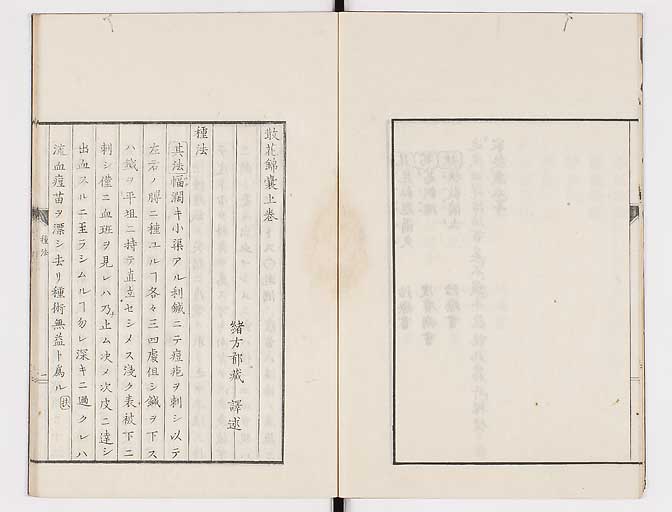 散花錦囊上巻
緒方郁藏 譯述
種法
其法幅濶キ小渠アル利鍼ニテ痘疱ヲ刺シ以テ
左右ノ膊ニ種ユルヿ各々三四處但シ鍼ヲ下ス
ハ鍼ヲ平坦ニ持テ直立セシメス淺ク表被下ニ
刺シ僅ニ血斑ヲ見レハ乃止ム決メ次皮ニ達シ
出血スルニ至ラシムルヿ勿レ深キニ過クレハ
流血痘苗ヲ漂シ去リ種術無益ト爲ル
種法